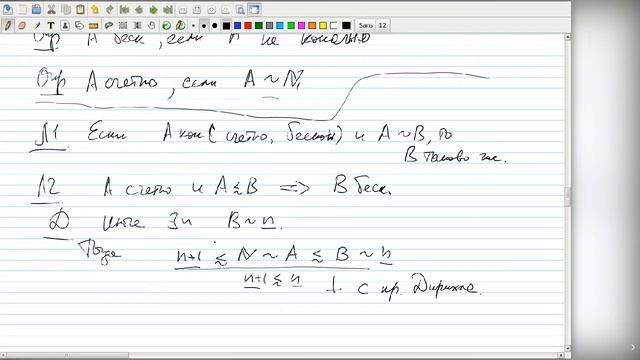 Опр A беск, если A не конечно
Опр A счетно, если A ~ ℕ
Л1 Если A кон (счетно, бескон) и A ~ B, то
B таково же.
Л2 A счетно и A ≲ B ⟹ B беск.
Д Иначе ∃ n B ~ n.
Тогда n+1 ≲ ℕ ~ A ≲ B ~ n
n+1 ≲ n ⊥ с пр. Дирихле.
Sans 12